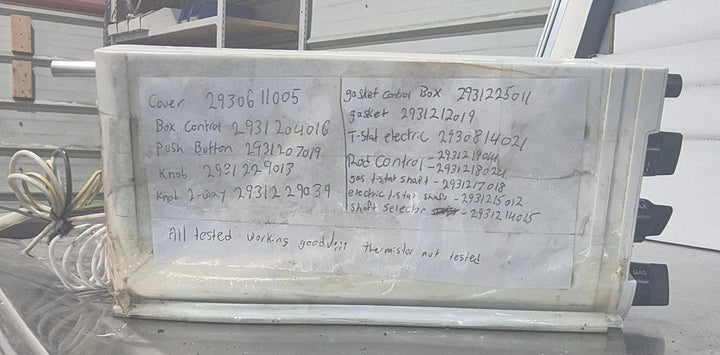 Cover 2930611005
Box Control 2931204016
Push Button 2931207019
Knob 2931229013
Knob 2-way 2931229039
gasket control Box 2931225011
gasket 2931212019
T-stat electric 2930814021
Rod Control - 2931219014
- 2931218021
gas t-stat shaft - 2931217018
electric t-stat shaft - 2931215012
shaft selector - 2931214015
All tested working good!!!! thermistor not tested
GAS